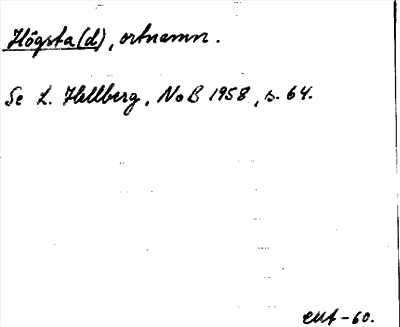 Högsta(d), ortnamn.
Se L. Hellberg, NoB 1958, s. 64.
-60.